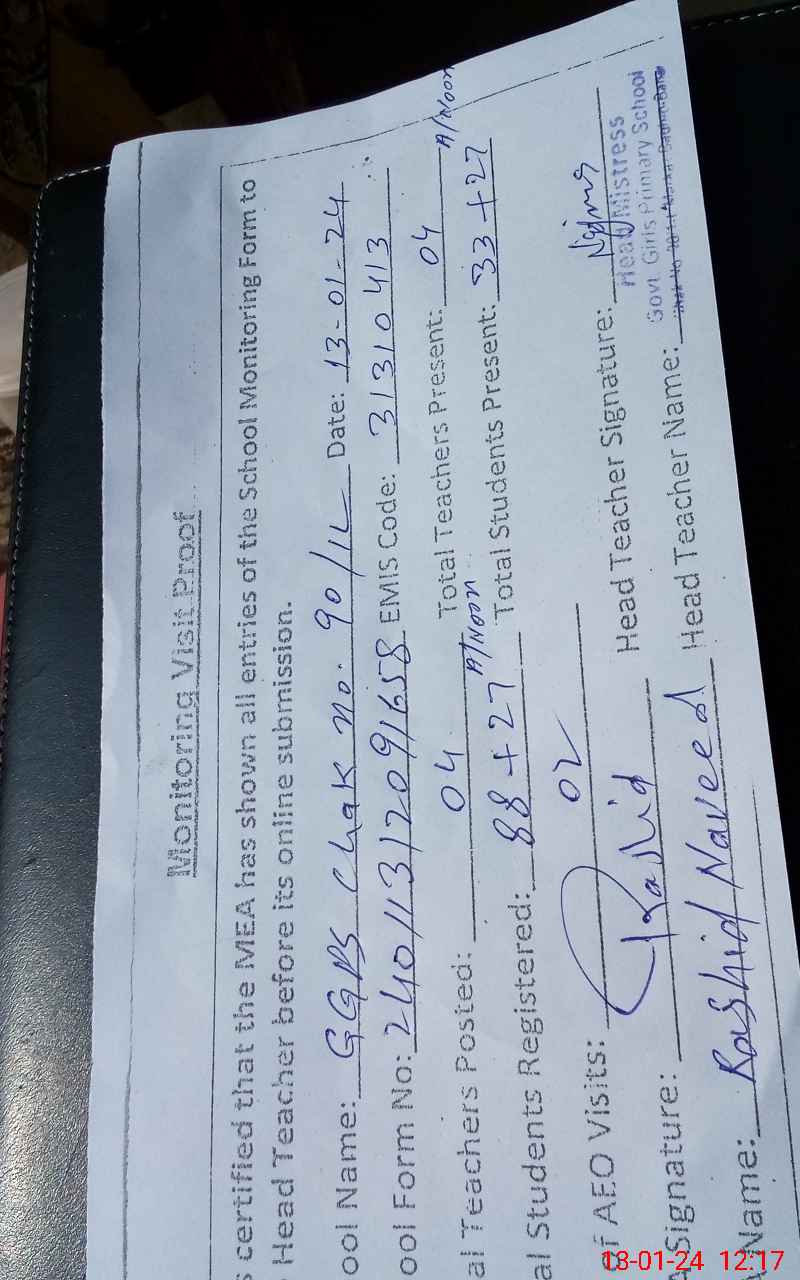 Monitoring Visit Proof
s certified that the MEA has shown all entries of the School Monitoring Form to
Head Teacher before its online submission.
ool Name: GGPS Chak no. 90/12L Date: 13-01-24
ool Form No: 24011312091658 EMIS Code: 31310413
al Teachers Posted: 04 Total Teachers Present: 04
al Students Registered: 88 + 27 A/Noon Total Students Present: 33 + 27 A/Noon
of AEO Visits: 02
Signature: Rashid Head Teacher Signature: Najma
Head Mistress
Govt. Girls Primary School
Name: Rashid Naveed Head Teacher Name:
13-01-24 12:17